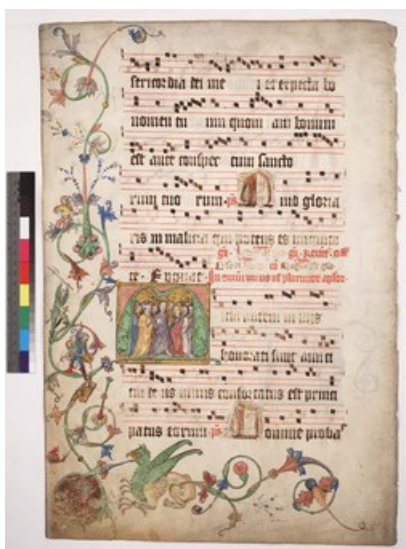 sericordia dei me i et expecta bo
nomen tu um quoni am bonum
est ante conspec tum sancto
rum tuo rum. ps. Quid gloria
ris in malicia qui potens es iniquita
te. Euouae.
michi autem nimis
honorati sunt amici
tui de us nimis confortatus est princi
patus eorum. ps. Domine proba